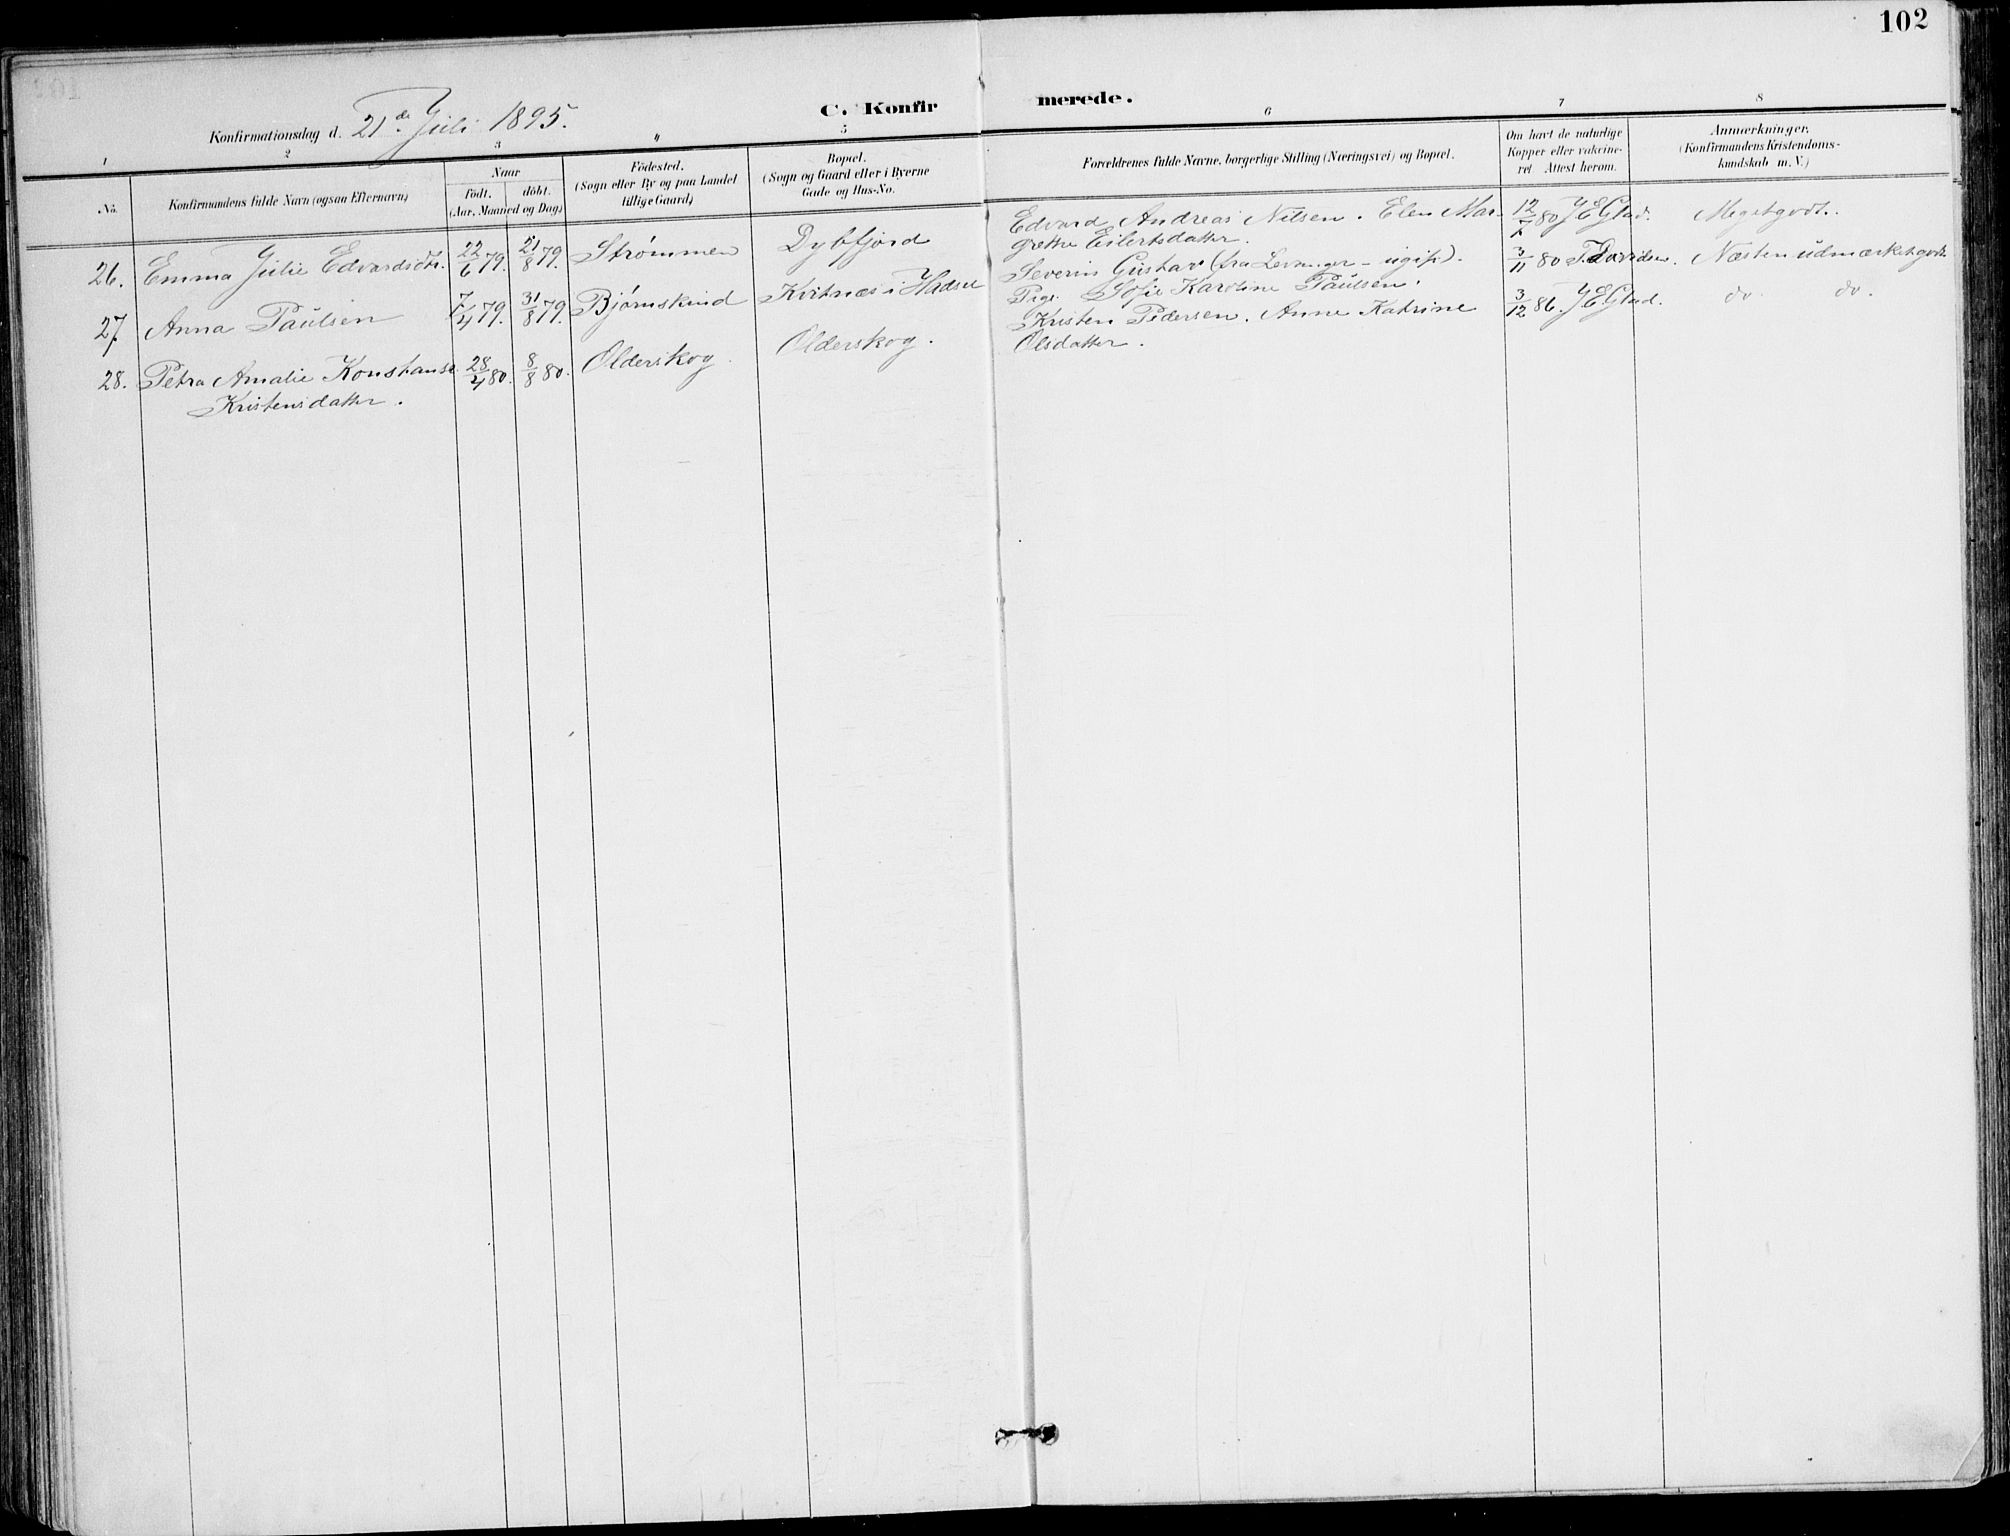 102
C. Konfirmerede.
Konfirmationsdag d. 21de Juli 1895.
1 2 3 4 5 6 7 8
No.
Konfirmandens fulde Navn (ogsaa Efternavn)
Naar
født. døbt.
(Aar, Maaned og Dag)
Fødested.
(Sogn eller By og paa Landet
tillige Gaard)
Bopæl.
(Sogn og Gaard eller i Byerne
Gade og Hus-No.
Forældrenes fulde Navne, borgerlige Stilling (Næringsvei) og Bopæl.
Om havt de naturlige
Kopper eller vakcine-
ret Attest herom.
Anmærkninger.
(Konfirmandens Kristendoms-
kundskab m. V.)
26. Emma Julie Edvardsdtr. 22/6 79. 21/8 79. Strømmen Dybfjord Edvard Andreas Nilsen. Elen Mar- 12/7 80 J E Glad. Meget godt.
grethe Eilertsdatter.
27. Anna Paulsen 7/4 79. 31/8 79. Bjørnskind Kvitnæs i Hadsel Severin Gustav (fra Levanger - ugift). 3/11 80 T. Davidsen. Næsten udmærket godt
Pige Sofie Karoline Paulsen.
28. Petra Amalie Konstanse 28/4 80. 8/8 80. Olderskog. Olderskog. Kristen Pedersen. Anne Katrine 3/12 86. J E Glad. do do.
Kristensdatter. Olsdatter.